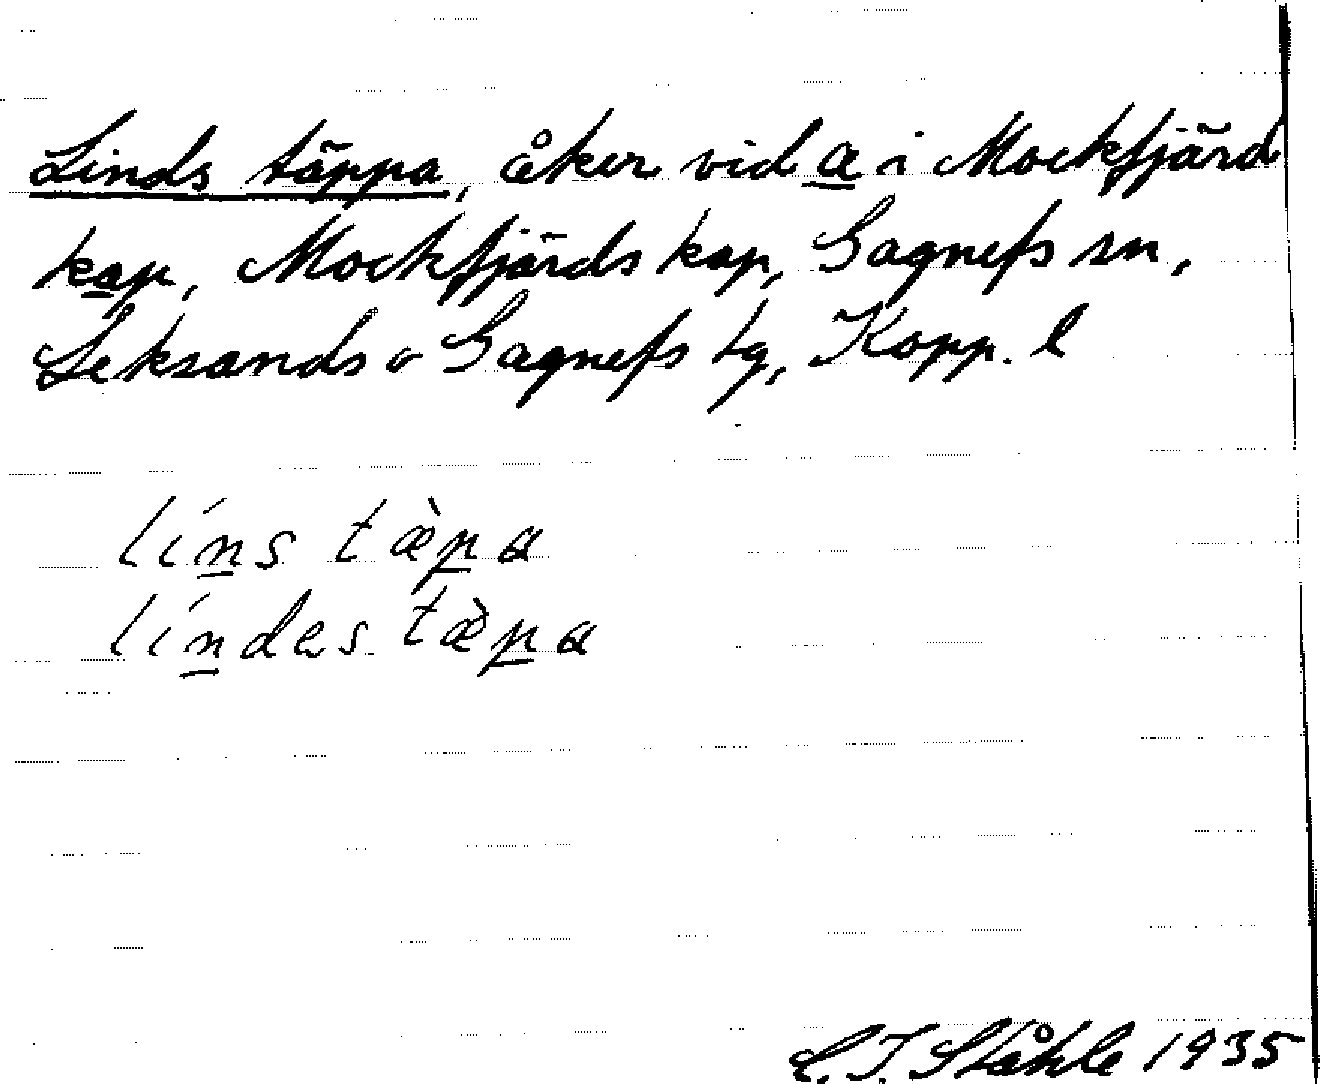 Linds täppa, åker vid a i Mockfjärd
kap, Mockfjärds kap, Gagnefs sn,
Leksands o Gagnefs tg, Kopp. l
líns tæ̀pa
líndes tæ̀pa
C. I. Ståhle 1935